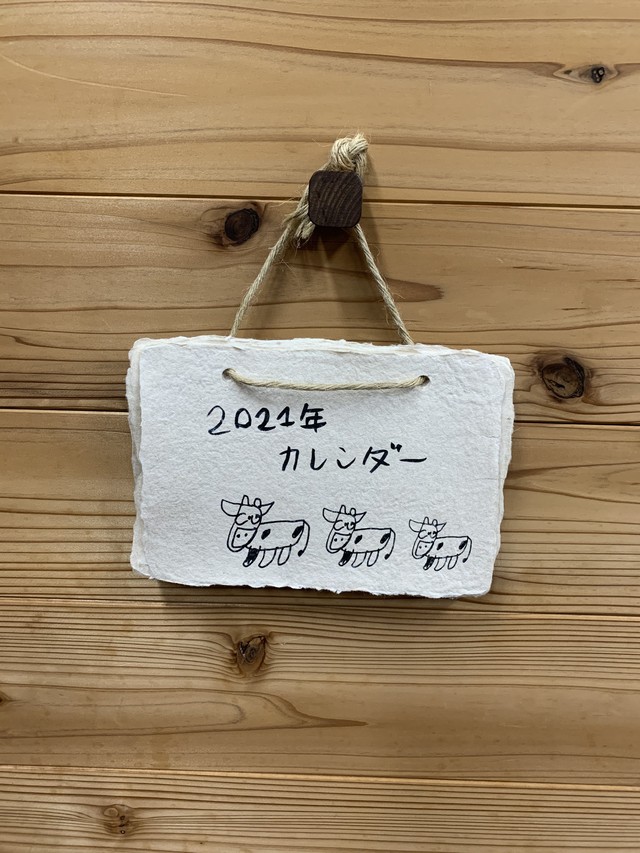 2021年
カレンダー